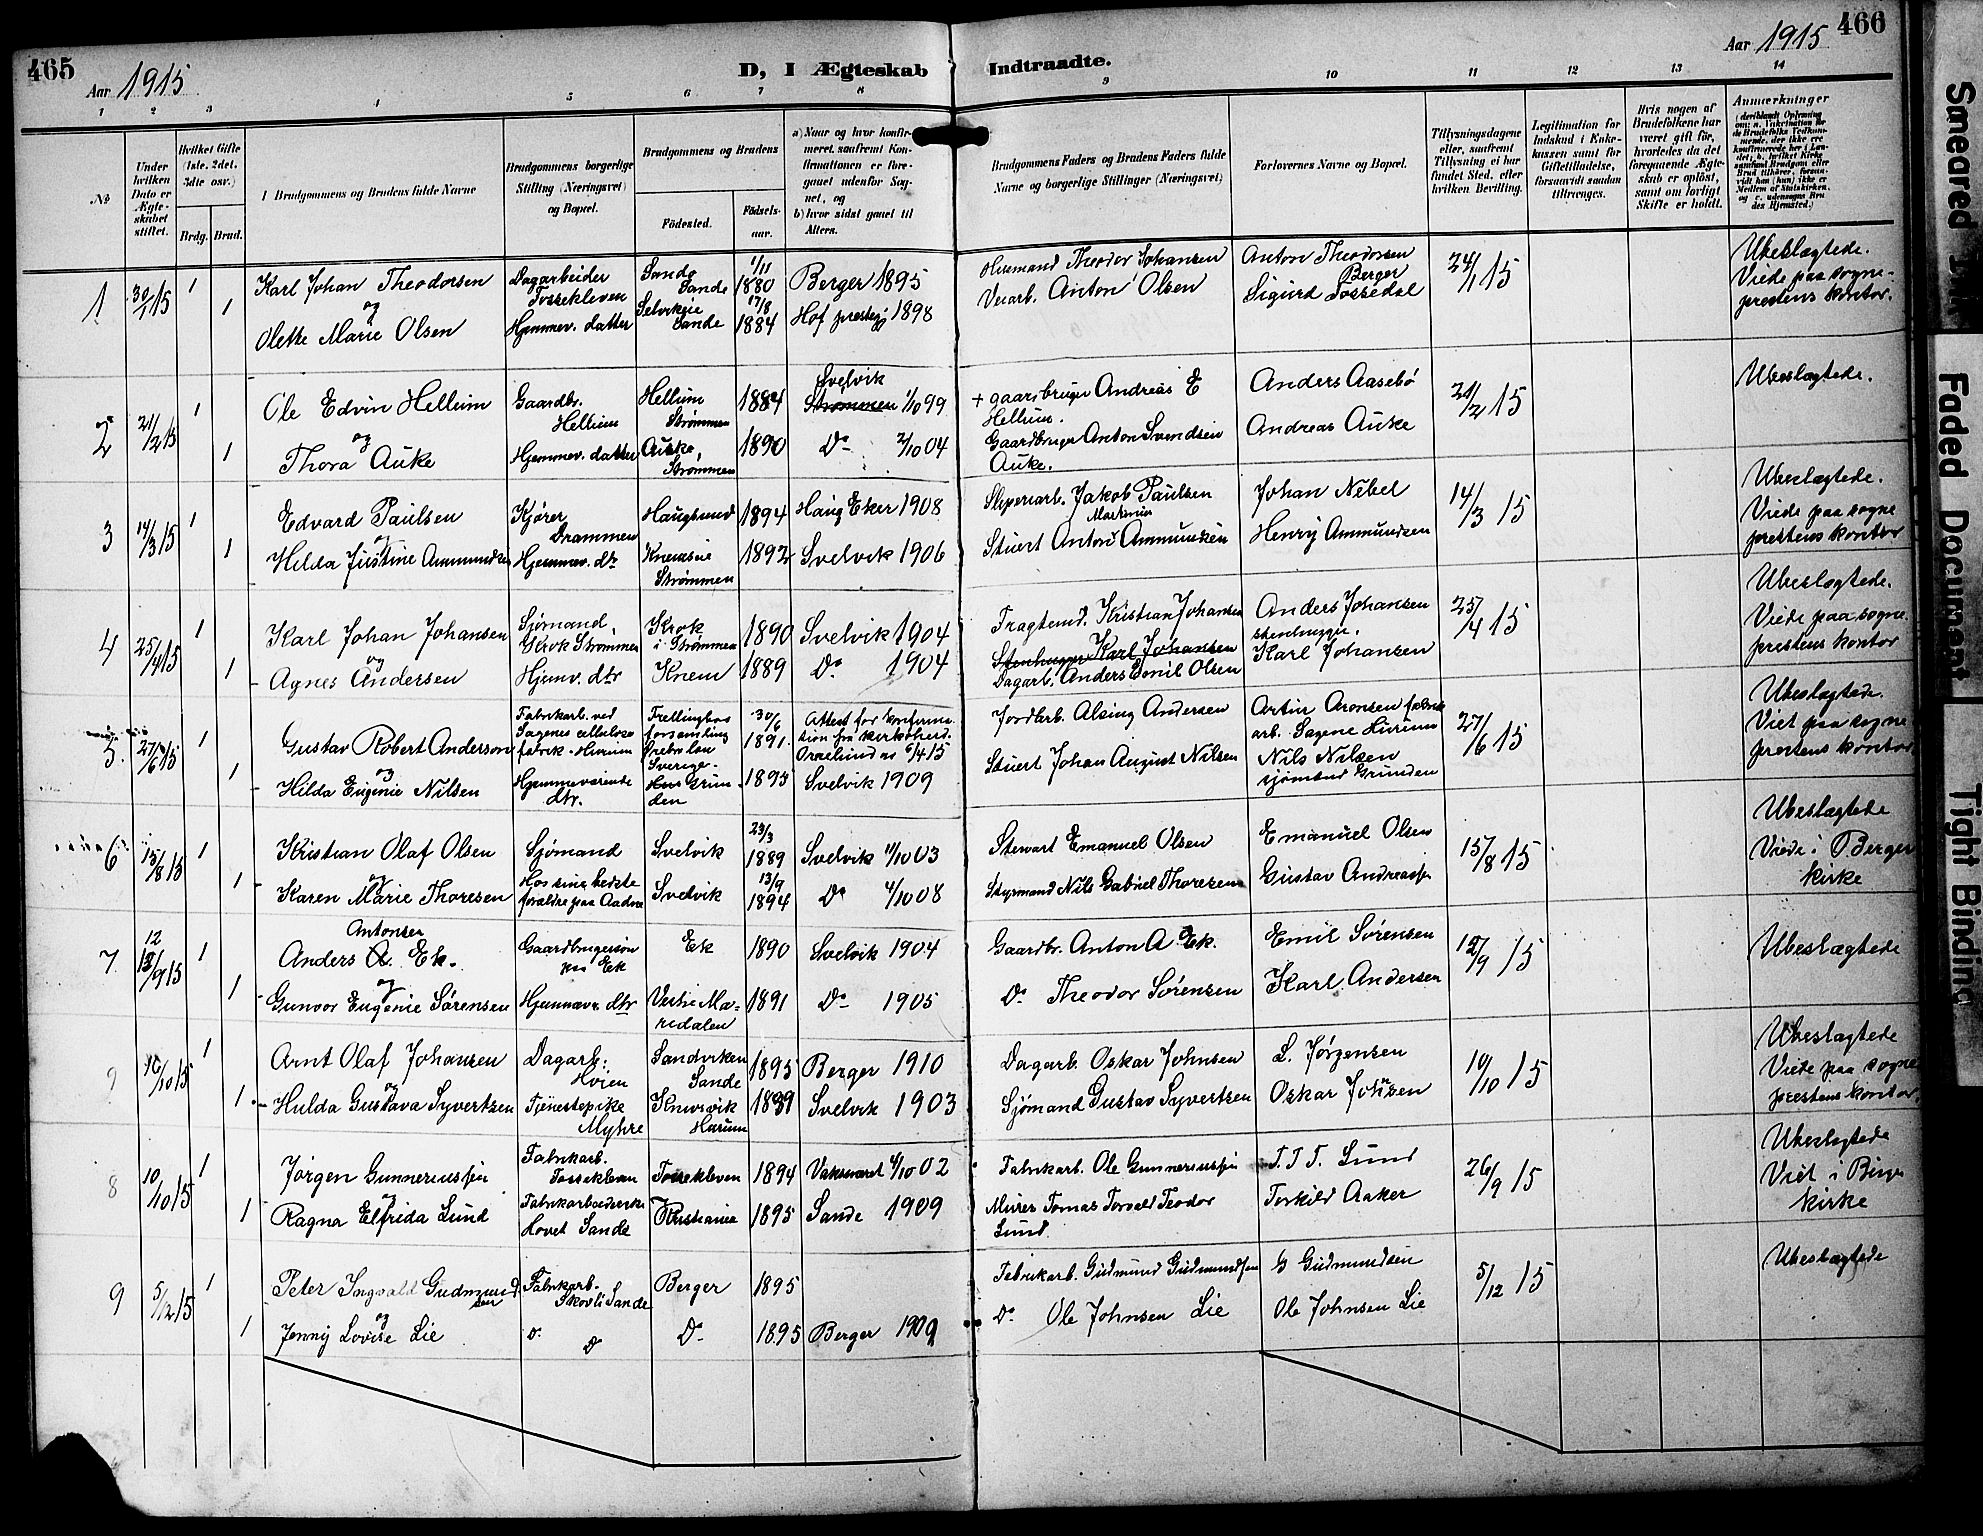 465
Aar 1915
D, I Ægteskab Indtraadte.
Aar 1915
466
1 2 3 4 5 6 7 8 9 10 11 12 13 14
№
Under hvilken Dato er Ægteskabet stiftet.
Hvilket Gifte (1ste. 2det. 3die osv.)
Brdg. Brud.
Brudgommens og Brudens fulde Navne
Brudgommens borgerlige Stilling (Næringsvei) og Bopæl.
Brudgommens og Brudens
Fødested.
Fødselsaar.
a) Naar og hvor konfirmeret, saafremt Konfirmationen er foregaaet udenfor Sognet, og
b) hvor sidst gaaet til Alters.
Brudgommens Faders og Brudens Faders fulde Navne og borgerlige Stillinger (Næringsvei)
Forlovernes Navne og Bopæl.
Tillysningsdagene eller, saafremt Tillysning ei har fundet Sted, efter hvilken Bevilling.
Legitimation for Indskud i Enkekassen samt for Giftetilladelse, forsaavidt saadan tiltrænges.
Hvis nogen af Brudefolkene har været gift før, hvorledes da det foregaaende Ægteskab er opløst, samt om lovligt Skifte er holdt.
Anmærkninger
1 30/1 15 1 Karl Johan Theodorsen Dagarbeider Tossekleven Sande Sande 1/11 1880 Berger 1895 Husmand Theodor Johansen Anton Theodorsen Berger 24/1 15 Ubeslægtede. Viede paa sogneprestens kontor.
og
1 Olette Marie Olsen Hjemmev. datter Selvikeie Sande 17/8 1884 Hof prestegj 1898 Anton Olsen Sigurd Tossedal
2 21/2 15 1 Ole Edvin Hellum Gaardbr. Hellum Hellum Strømmen 1884 Svelvik Strømmen 1/10 99 + gaardbruger Andreas E Hellum. Anders Aasebø 21/2 15 Ubeslægtede.
og
1 Thora Auke Hjemmev. datter Auke, Strømmen 1890 Do 2/10 04 Gaardbruger Anton Svendsen Auke. Andreas Auke
3 14/3 15 1 Edvard Paulsen Kjører Drammen Haugsund 1894 Haug Eker 1908 Sliperiarb. Jakob Paulsen Johan Nebel 14/3 15 Ubeslægtede. Viede paa sogneprestens kontor
og
1 Hilda Justine Ammundsen Hjemmev. dtr Knemseie Strømmen 1892 Svelvik 1906 Stuert Anton Martinus Ammundsen Henry Ammundsen
4 25/4 15 1 Karl Johan Johansen Sjømand Krok Strømmen Krok i Strømmen 1890 Svelvik 1904 Fragtemd. Kristian Johansen Anders Johansen stenhugger. 25/4 15 Ubeslægtede. Viede paa sogneprestens kontor
og
1 Agnes Andersen Hjemv. dtr Knem 1889 Do 1904 Stenhugger Karl Johansen Dagarb. Anders Emil Olsen Karl Johansen
5. 27/6 15 1 Gustav Robert Anderson Fabrikarb. ved Sagenes cellulosefabrik forsamling Örebro län Sverige. 30/6 1891. Attest for konfirmation fra kirkoherd. 6/4 15 Jordarb. Alsing Andersen Artur Aronsen fabrikarb. Sagene 27/6 15 Ubeslægtede. Viet paa sogneprestens kontor
og
1 Hilda Eugenie Nilsen Hjemmeværende dtr. Grunden 1893 Svelvik 1909 Stuert Johan August Nilsen Nils Nilsen sjømand Grunden
6 15/8 15 1 Kristian Olaf Olsen Sjømand Svelvik 23/3 1889 Svelvik 1/10 03 Stewart Emanuel Olsen Emanuel Olsen 15/8 15 Ubeslægtede Viede i Berger kirke
og
1 Karen Marie Thoresen Hos sine bedsteforældre paa Aadne Svelvik 13/9 1894 Do 4/10 08 Styrmand Nils Gabriel Thoresen Gustav Andreassen
7. 12/9 15 1 Anders Antonsen Ek. Gaardbrugersøn paa Ek Ek 1890 Svelvik 1904 Gaardbr. Anton A Ek. Emil Sørensen 12/9 15 Ubeslægtede
og
1 Gunvor Eugenie Sørensen Hjemmev. dtr Vestre Maredalen 1891 Do 1905 Do Theodor Sørensen Karl Andersen
9 10/10 15 1 Arnt Olaf Johansen Dagarb. Høien Sandviken Sande 1895 Berger 1910 Dagarb. Oskar Johnsen L. Jørgensen 10/10 15 Ubeslægtede Viede paa sogneprestens kontor.
og
1 Hulda Gustava Syvertsen Tjenestepike Myhre Knivsvik Hurum 1889 Svelvik 1903 Sjømand Gustav Syvertsen Oskar Johnsen
8 10/10 15 1 Jørgen Gunneriussen Fabrikarb. Tossekleven Tossekleven 1894 4/10 02 Fabrikarb. Ole Gunneriussen T. T. T. Lund 26/9 15 Ubeslægtede Viet i Berger kirke
og
1 Ragna Elfrida Lund Fabrikarbeiderske Hovet Sande Kristiania 1895 Sande 1909 Murer Tomas Torvald Teodor Lund. Torkild Aaker
9 5/12 15 1 Peter Ingvald Gudmundsen Fabrikarb. Skovli Sande Berger 1895 Fabrikarb. Gudmund Gudmundsen G Gudmundsen 5/12 15 Ubeslægtede
og
1 Jenny Lovise Lie Do Do Do 1895 Berger 1909 Do Ole Johnsen Lie Ole Johnsen Lie
Smeared Ink
Faded Document
Tight Binding